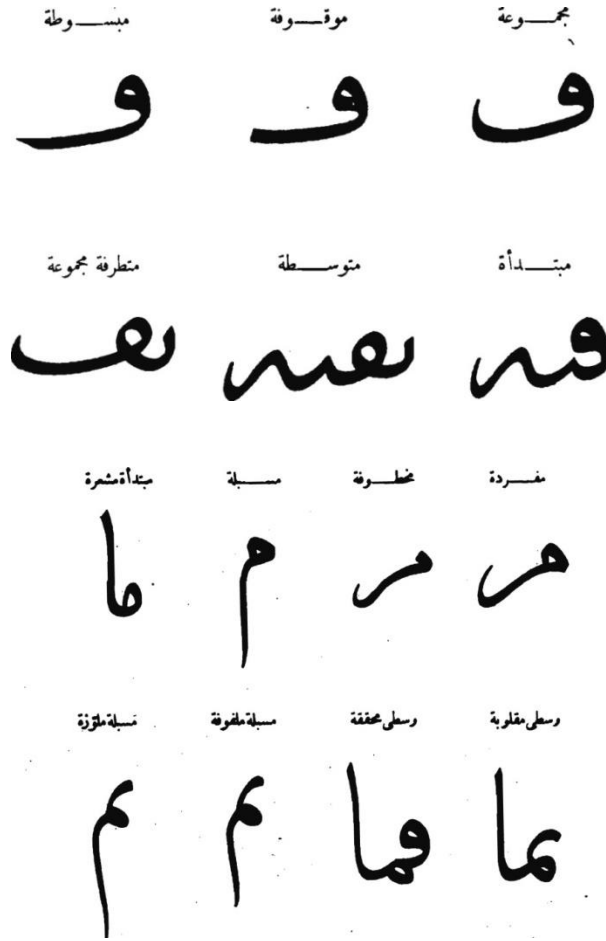 مجمـــوعة موقـــوفة مبســـوطة
ف ف ف
مبتـــدأة متوســـطة متطرفة مجموعة
فـر ىفىر ىف
مفـــردة مخطـــوفة مســـبلة مبتدأة مشعرة
م م م ما
وسطى مقلوبة وسطى محققة مسبلة ملفوفة مسبلة ملوزة
ىما فما م م